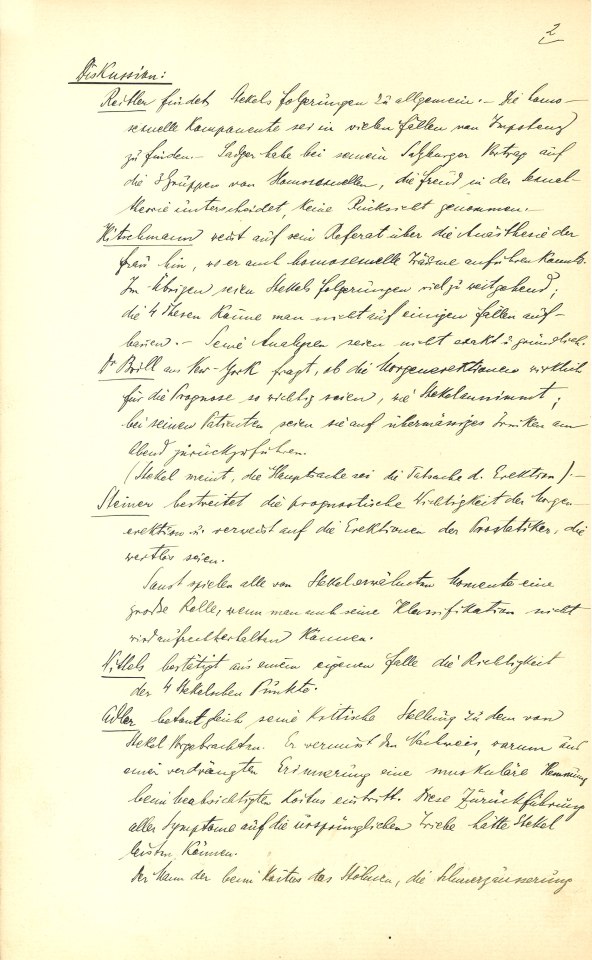 2
Diskussion:
Reitler findet Stekels Folgerungen zu allgemein. – Die homo-
sexuelle Komponente sei in vielen Fällen von Impotenz
zu finden. – Sadger habe bei seinem Salzburger Vortrag auf
die 3 Gruppen von Homosexuellen, die Freud in der Sexual-
theorie unterscheidet, keine Rücksicht genommen. –
Hitschmann weist auf sein Referat über die Anästhesie der
Frau hin, wo er auch homosexuelle Träume anführen konnte.
Im übrigen seien Stekels Folgerungen viel zu weitgehend;
die 4 Thesen könne man nicht auf einigen Fällen auf-
bauen. – Seine Analysen seien nicht exakt u. gründlich.
Dr Brill aus New-York fragt, ob die Morgenerektionen wirklich
für die Prognose so wichtig seien, wie Stekel annimmt;
bei seinen Patienten seien sie auf übermässiges Trinken am
Abend zurückzuführen.
(Stekel meint, die Hauptsache sei die Tatsache d. Erektion). –
Steiner bestreitet die prognostische Wichtigkeit der Morgen-
erektion u. verweist auf die Erektionen der Prostatiker, die
wertlos seien.
Sonst spielen alle von Stekel erwähnten Momente eine
große Rolle, wenn man auch seine Klassifikation nicht
wird aufrechterhalten können.
Wittels bestätigt aus einem eigenen Falle die Richtigkeit
der 4 Stekelschen Punkte.
Adler betont gleich seine kritische Stellung zu dem von
Stekel Vorgebrachten. Er vermisst den Nachweis, warum aus
einer verdrängten Erinnerung eine muskuläre Hemmung
beim beabsichtigten Koitus eintritt. Diese Zurückführung
aller Symptome auf die ursprünglichen Triebe hätte Stekel
leisten können.
Der Mann der beim Koitus das Stöhnen, die Schmerzäusserung